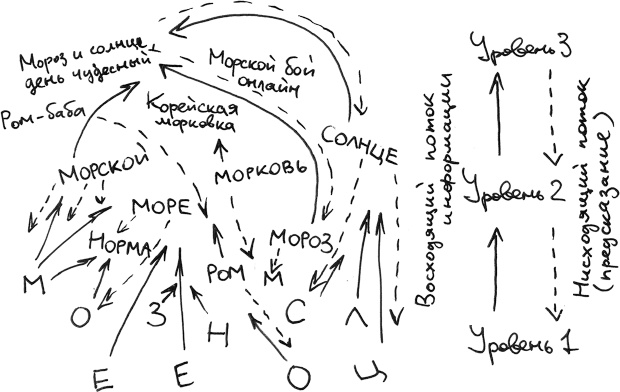 Мороз и солнце
день чудесный
Морской бой
онлайн
Ром-баба
Корейская
морковка
СОЛНЦЕ
МОРСКОЙ
МОРКОВЬ
МОРЕ
НОРМА
МОРОЗ
РОМ
М
М
О
З
Н
С
Л
Е
Е
О
Ц
Уровень 3
Уровень 2
Уровень 1
Восходящий поток
информации
Нисходящий поток
(предсказание)